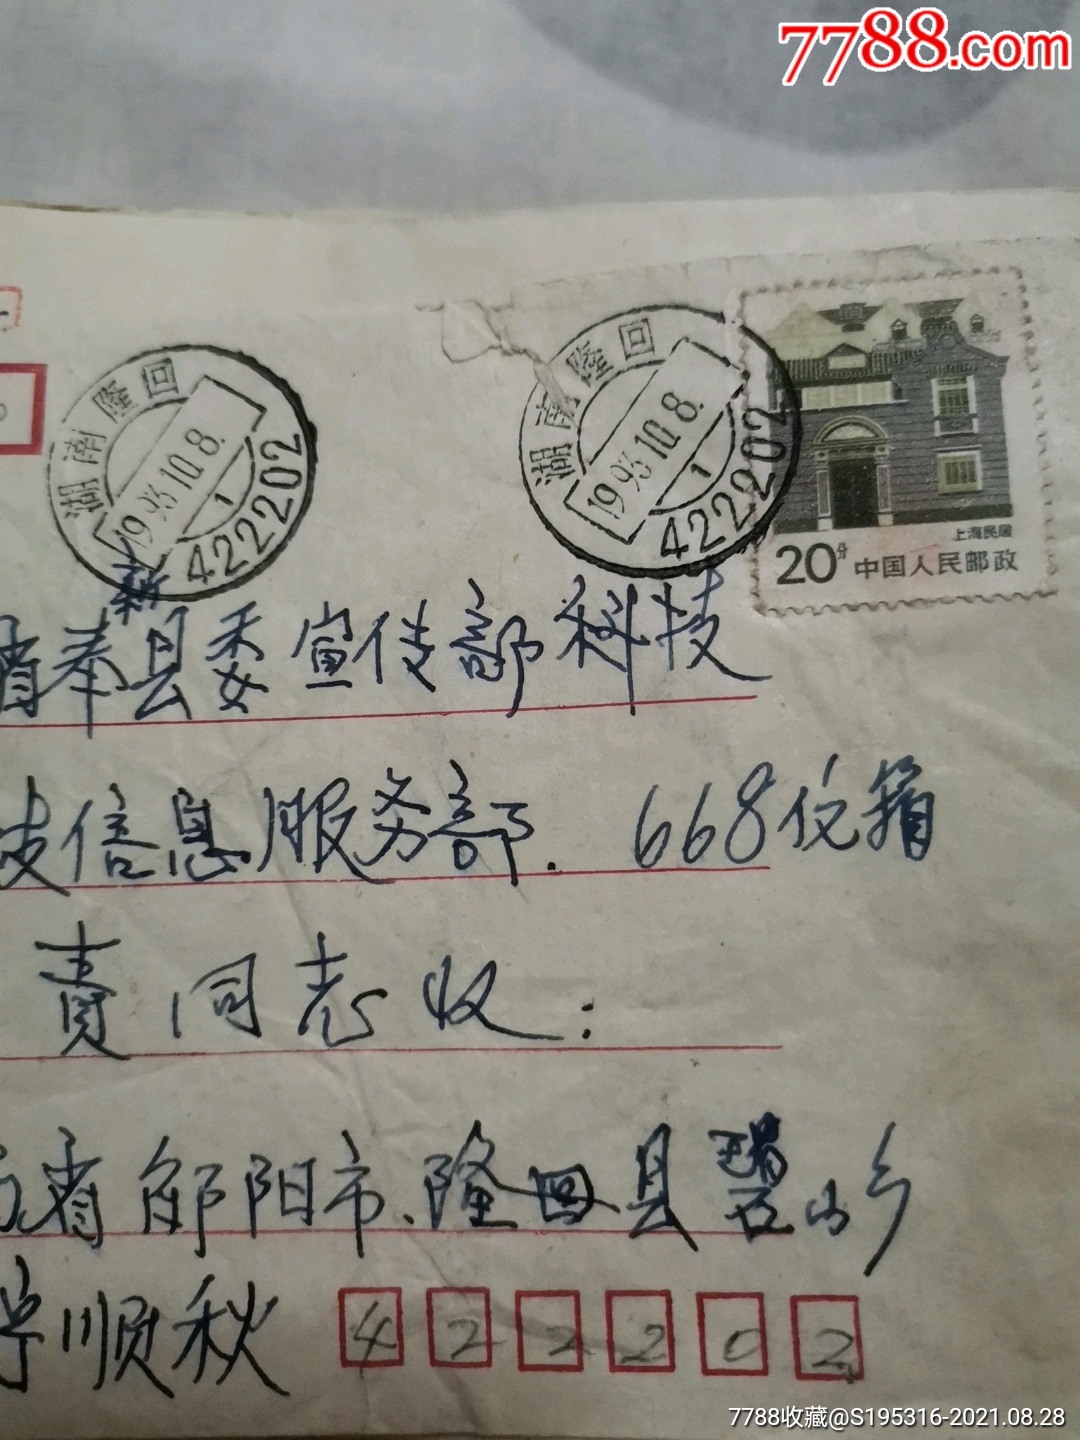 7788.com
湖南隆回
1993.10.8.
1
422202
湖南隆回
1993.10.8.
1
422202
上海民居
20分 中国人民邮政
新
省奉县委宣传部科技
信息服务部. 668信箱
责同志收:
省邵阳市、隆回县 山乡
顺秋 422202
7788收藏@S195316-2021.08.28